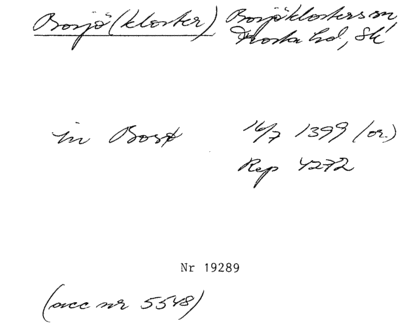 Bosjö(kloster) Bosjöklosters sn,
Frosta hd, Sk
in Bosø 16/7 1399 (or.)
Rep 4272
Nr 19289
(acc nr 5548)